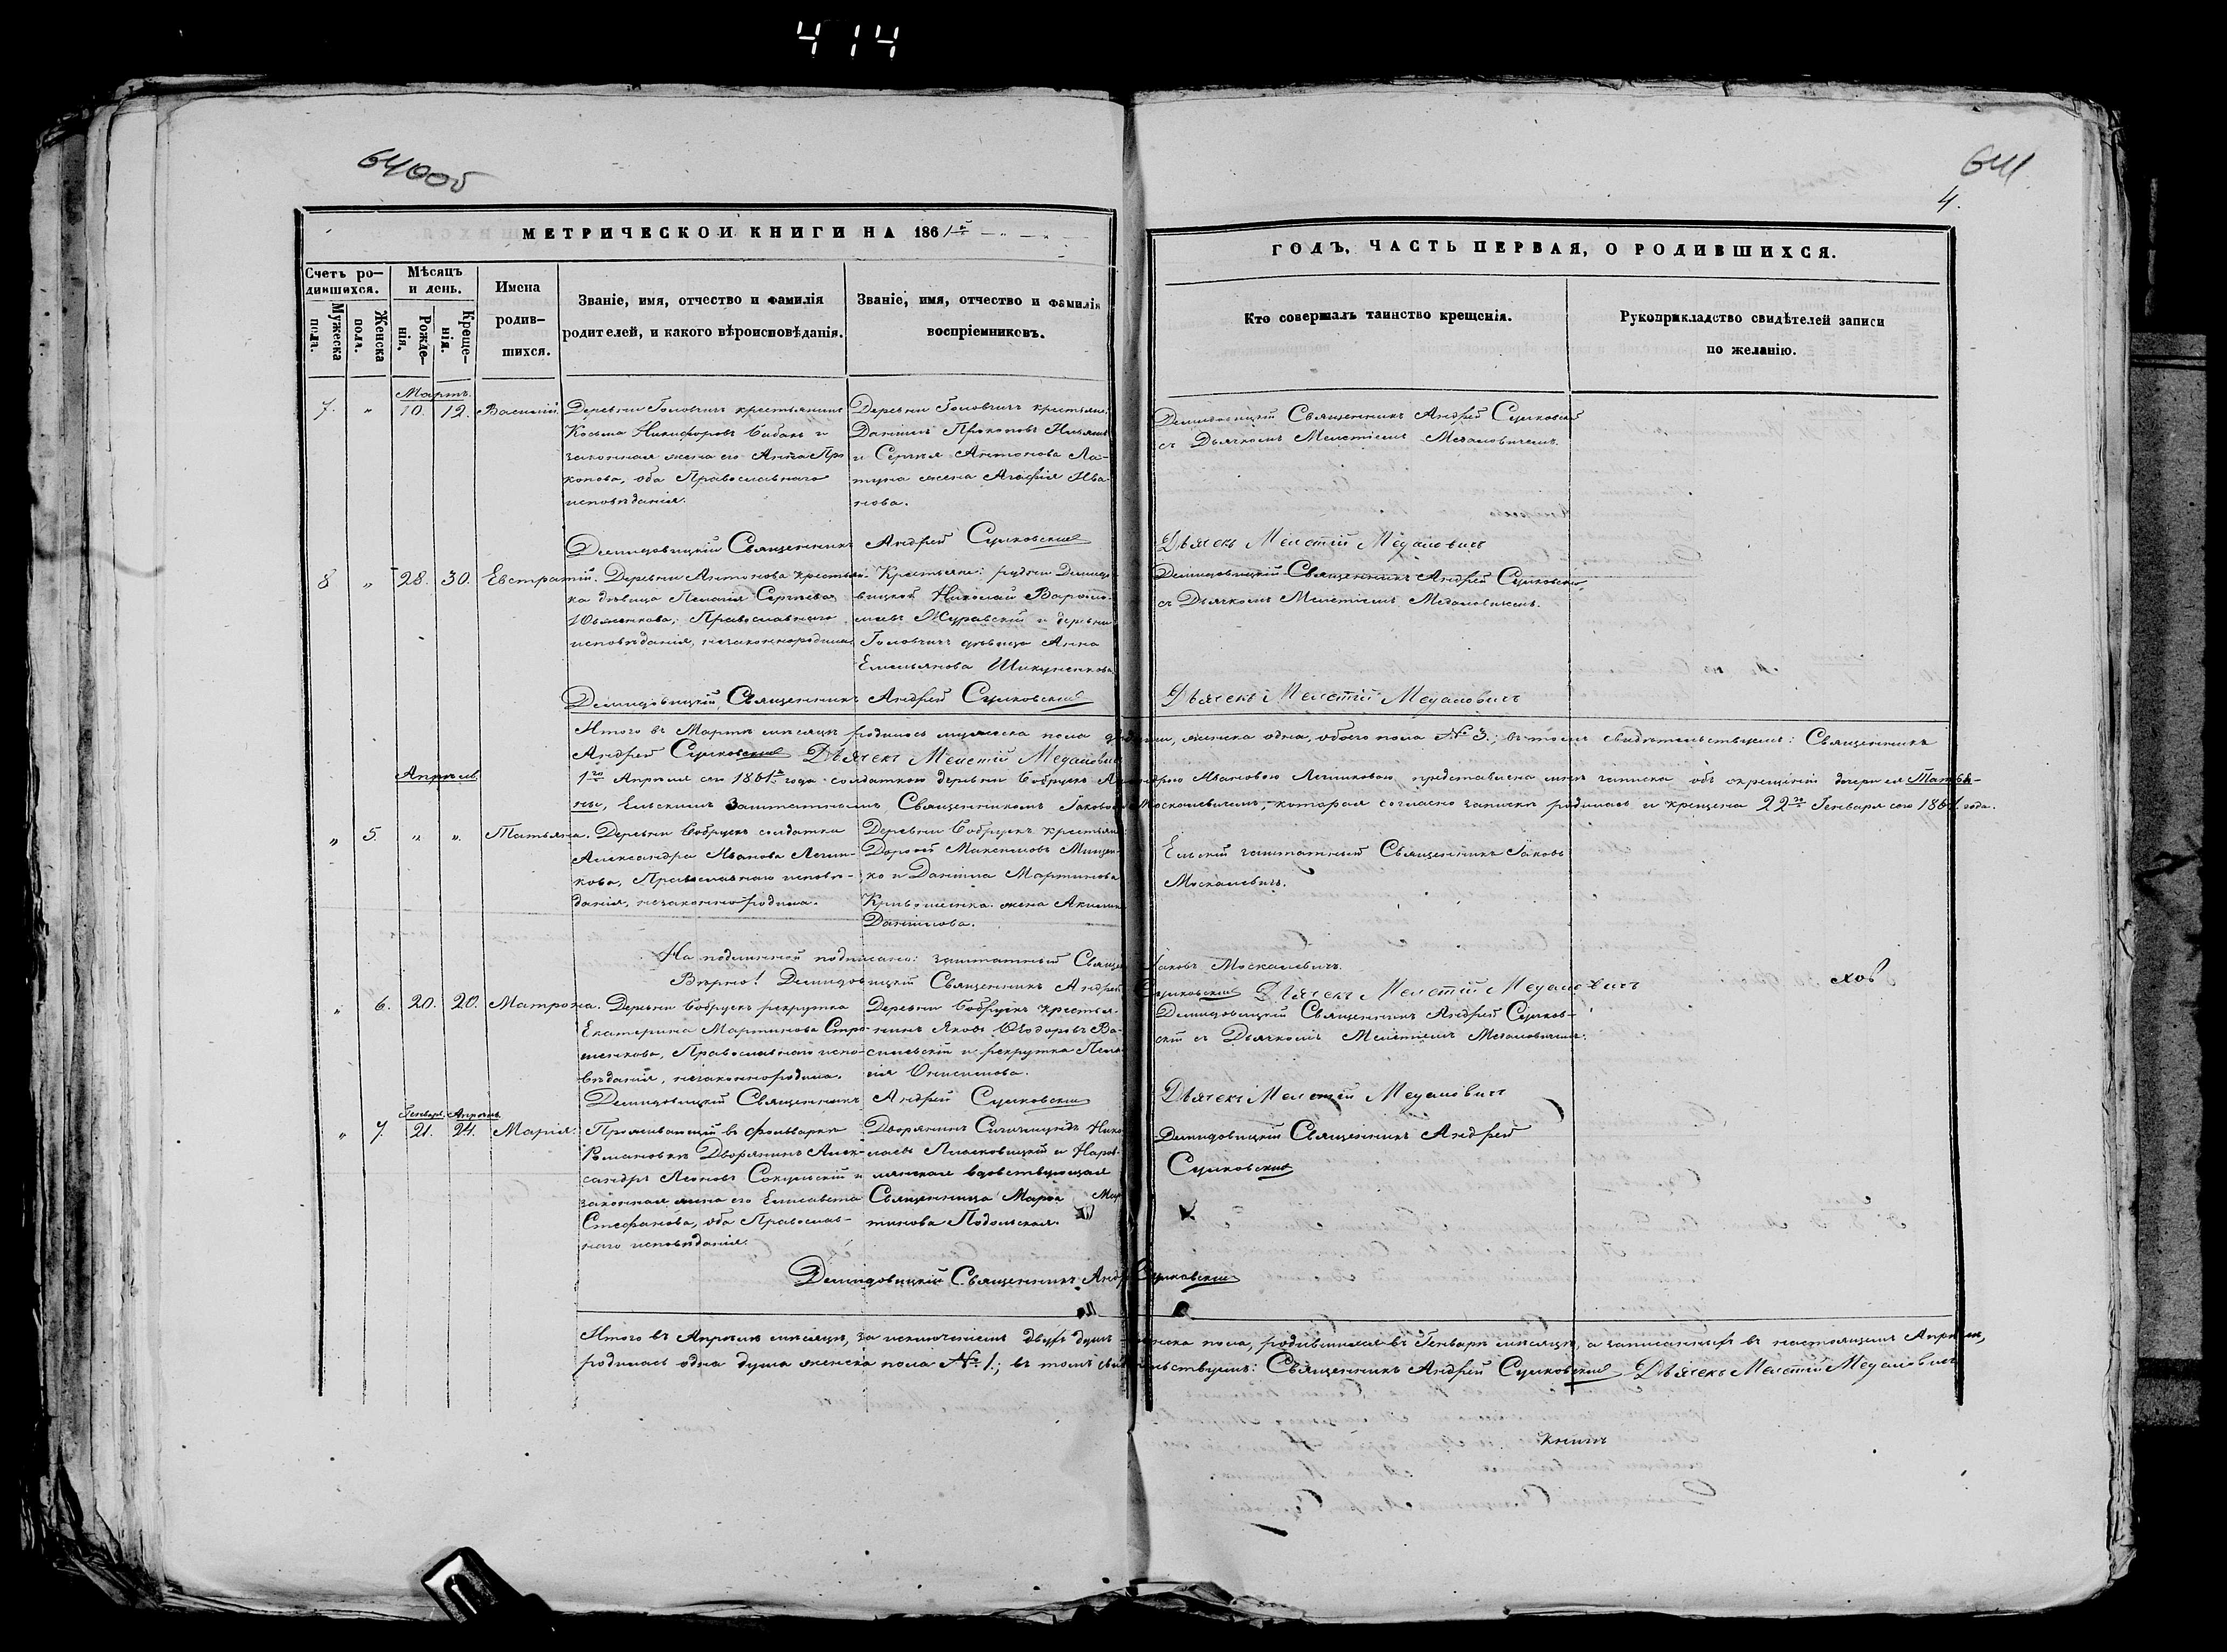 414
640об
641
4.
МЕТРИЧЕСКОЙ КНИГИ НА 1861й
ГОДЪ, ЧАСТЬ ПЕРВАЯ, О РОДИВШИХСЯ.
Счетъ ро-
дившихся.
Мужеска
пола.
Женска
пола.
Мѣсяцъ
и день.
Рожде-
нія.
Креще-
нія.
Имена
родив-
шихся.
Званіе, имя, отчество и фамилія
родителей, и какого вѣроисповѣданія.
Званіе, имя, отчество и фамилія
воспріемниковъ.
Кто совершалъ таинство крещенія.
Рукоприкладство свидѣтелей записи
по желанію.
Мартъ.
7. " 10. 12. Василій.
Деревни Головчичъ крестьянинъ
Козьма Никифоровъ Бабакъ и
законная жена его Анна Про
копова, оба Православнаго
исповѣданія.
Деревни Головчичъ крестьян:
Даніилъ Прокоповъ
и Сергія Антонова Ла-
пуна жена Агафія Ива-
нова.
Демидовицкій Священникъ Андрей Сулковскій
съ Дьячкомъ Мелетіемъ Мегаловичемъ.
Демидовицкій Священникъ Андрей Сулковскій
Дьячекъ Мелетій Мегаловичъ
8 " 28. 30. Евстратій.
Деревни Антонова крестьян-
ка дѣвица Пелагія Сергѣева
Юьменкова, Православнаго
исповѣданія, незаконнородила
Крестьяне: рудни Демидо-
вицкой Николай Варфоло-
меевъ Журавскій и деревни
Головчичъ дѣвица Анна
Емельянова Шикуненкова
Демидовицкій Священникъ Андрей Сулковскій
съ Дьячкомъ Мелетіемъ Мегаловичемъ.
Демидовицкій Священникъ Андрей Сулковскій
Дьячекъ Мелетій Мегаловичъ
Итого въ Мартѣ мѣсяцѣ родилось мужеска пола двѣ души, женска одна, обоего пола № 3.; въ томъ свидѣтельствуемъ: Священникъ
Андрей Сулковскій Дьячекъ Мелетій Мегаловичъ
Апрѣль
1го Апрѣля сего 1861го года солдаткою деревни Бобрускъ Александрою Ивановою Легчиковою, представлена мнѣ записка объ окрещеніи дочери ея Татья-
ны, Ельскимъ Заштатнымъ Священникомъ Іаковомъ Москалевичемъ, которая согласно записки родилась и крещена 22го Генваря сего 1861 года.
" 5. " " Татьяна.
Деревни Бобрускъ солдатка
Александра Иванова Легчи-
кова, Православнаго исповѣ-
данія, незаконнородила.
Деревни Бобрускъ крестьян:
Дорофей Максимовъ
ко и Даніила Мартинова
Кривошенка жена Акилина
Даніилова.
Ельскій заштатный Священникъ Іаковъ
Москалевичъ.
На подлинной подписано: заштатный Священникъ Іаковъ Москалевичъ.
Вѣрно! Демидовицкій Священникъ Андрей Сулковскій Дьячекъ Мелетій Мегаловичъ
" 6. 20. 20. Матрона.
Деревни Бобрускъ рекрутка
Екатерина Мартинова Стра-
шенкова, Православнаго испо-
вѣданія, незаконнородила.
Деревни Бобрускъ крестья-
нинъ Яковъ Ѳеодоровъ Ва-
силевскій и рекрутка Пела-
гія Онисимова.
Демидовицкій Священникъ Андрей Сулков-
скій съ Дьячкомъ Мелетіемъ Мегаловичемъ.
Демидовицкій Священникъ Андрей Сулковскій
Дьячекъ Мелетій Мегаловичъ
Генварь. Апрѣль.
" 7. 21. 24. Марія.
Проживающій въ фольваркѣ
Романовкѣ Дворянинъ Алек-
сандръ Леоновъ Сокульскій и
законная жена его Елисавета
Стефанова, оба Православ-
наго исповѣданія.
Дворянинъ Сигизмундъ Нико-
лаевъ Плясковицкій и Наров-
лянская вдовствующая
Священница Марѳа Мар
тинова Подольская.
Демидовицкій Священникъ Андрей
Сулковскій
Демидовицкій Священникъ Андрей Сулковскій
Итого въ Апрѣлѣ мѣсяцѣ, за исключеніемъ двухъ душъ женска пола, родившихся въ Генварѣ мѣсяцѣ, а записанныхъ въ настоящемъ Апрѣлѣ,
родилась одна душа женска пола № 1.; въ томъ свидѣтельствуемъ: Священникъ Андрей Сулковскій Дьячекъ Мелетій Мегаловичъ